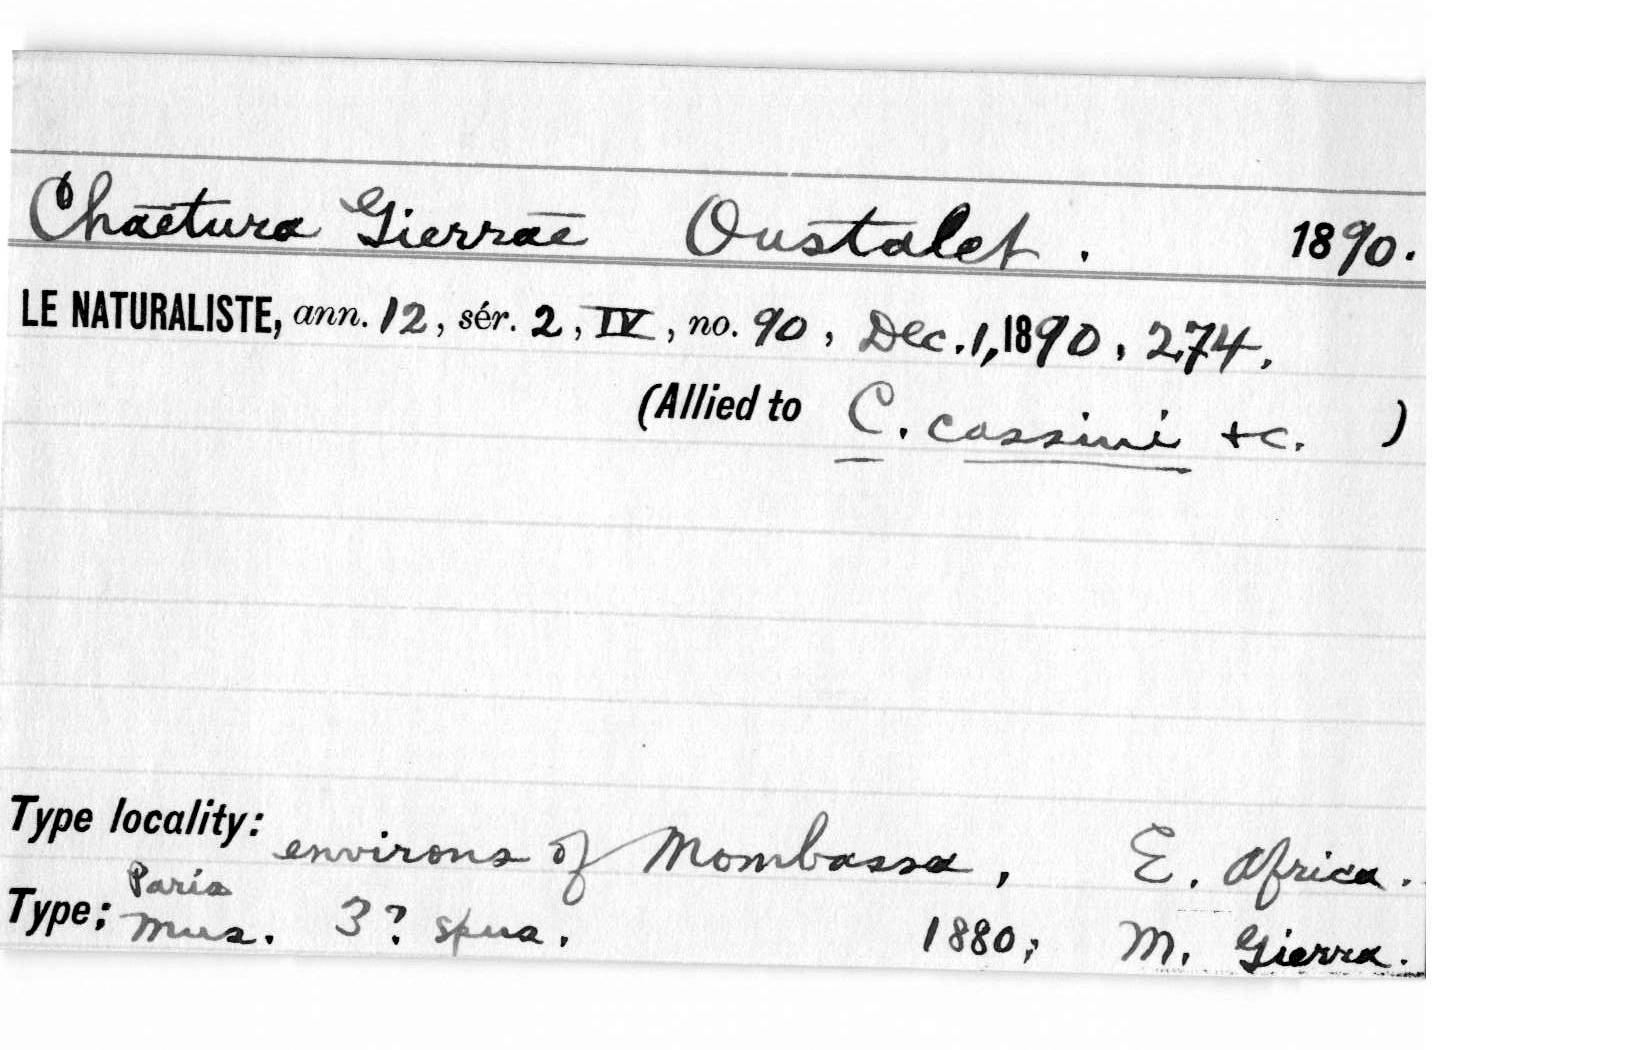 Chaetura Gierrae Oustalet. 1890.
LE NATURALISTE, ann. 12, sér. 2, IV, no. 90, Dec. 1, 1890, 274.
(Allied to C. cassini &c. )
Type locality: environs of Mombassa, E. Africa.
Paris
Type: Mus. 3? spns. 1880; M. Gierra.